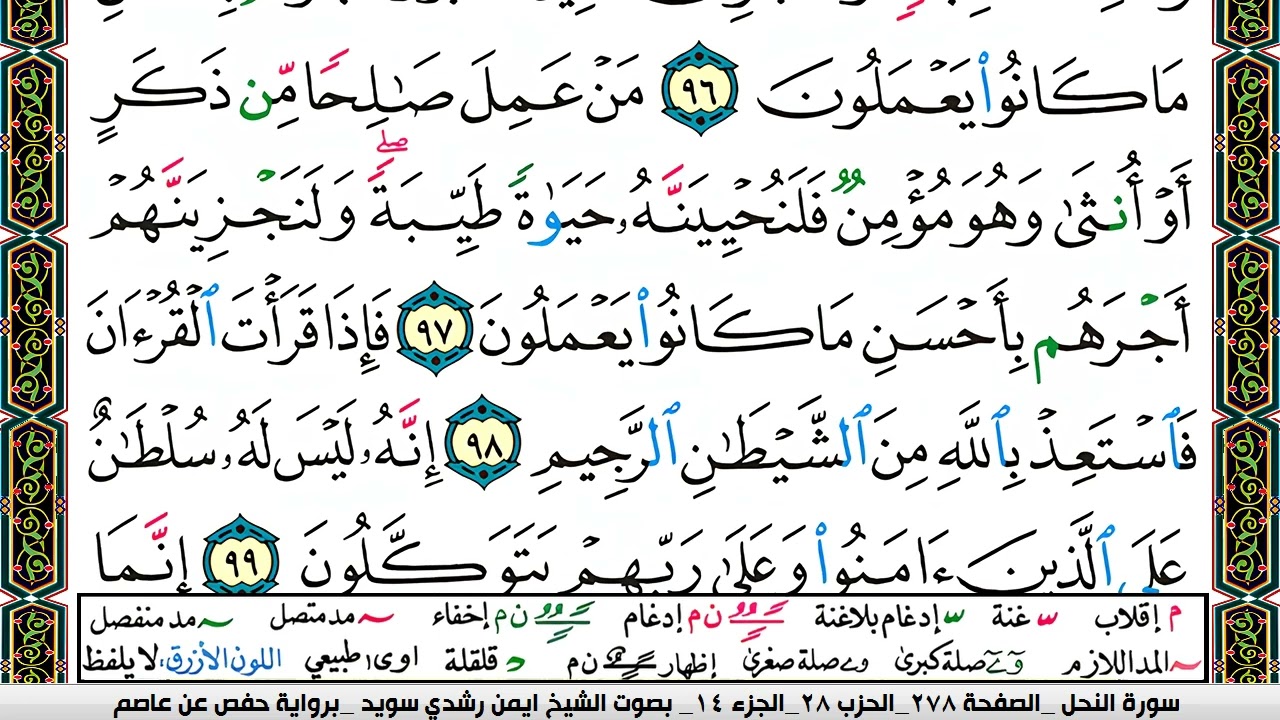 مَا كَانُوا۟ يَعْمَلُونَ ٩٦ مَنْ عَمِلَ صَـٰلِحًا مِّن ذَكَرٍ
أَوْ أُنثَىٰ وَهُوَ مُؤْمِنٌ فَلَنُحْيِيَنَّهُۥ حَيَوٰةً طَيِّبَةً ۖ وَلَنَجْزِيَنَّهُمْ
أَجْرَهُم بِأَحْسَنِ مَا كَانُوا۟ يَعْمَلُونَ ٩٧ فَإِذَا قَرَأْتَ ٱلْقُرْءَانَ
فَٱسْتَعِذْ بِٱللَّهِ مِنَ ٱلشَّيْطَـٰنِ ٱلرَّجِيمِ ٩٨ إِنَّهُۥ لَيْسَ لَهُۥ سُلْطَـٰنٌ
عَلَى ٱلَّذِينَ ءَامَنُوا۟ وَعَلَىٰ رَبِّهِمْ يَتَوَكَّلُونَ ٩٩ إِنَّمَا
م إقلاب س غنة س إدغام بلاغنة ن م إدغام ن م إخفاء مد متصل مد منفصل
المد اللازم صلة كبرى صلة صغرى إظهار ن م قلقلة اوى طبيعي اللون الأزرق، لا يلفظ
سورة النحل _الصفحة ٢٧٨_الحزب ٢٨_الجزء ١٤_ بصوت الشيخ ايمن رشدي سويد _برواية حفص عن عاصم